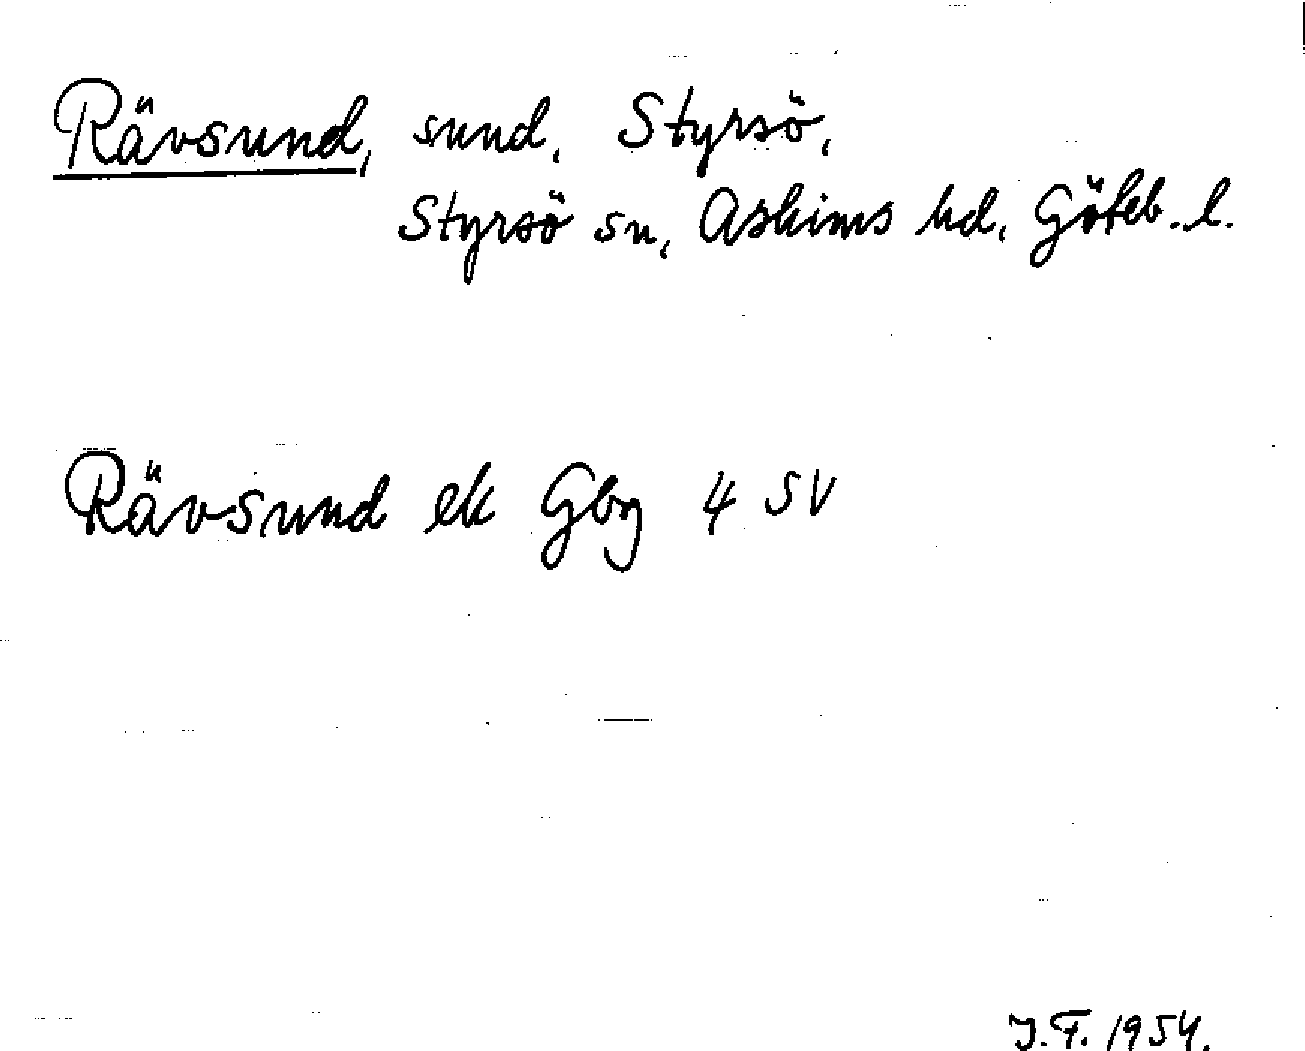 Rävsund, sund, Styrsö,
Styrsö sn, Askims hd, Göteb. l.
Rävsund ek Gbg 4 SV
J.F. 1954.